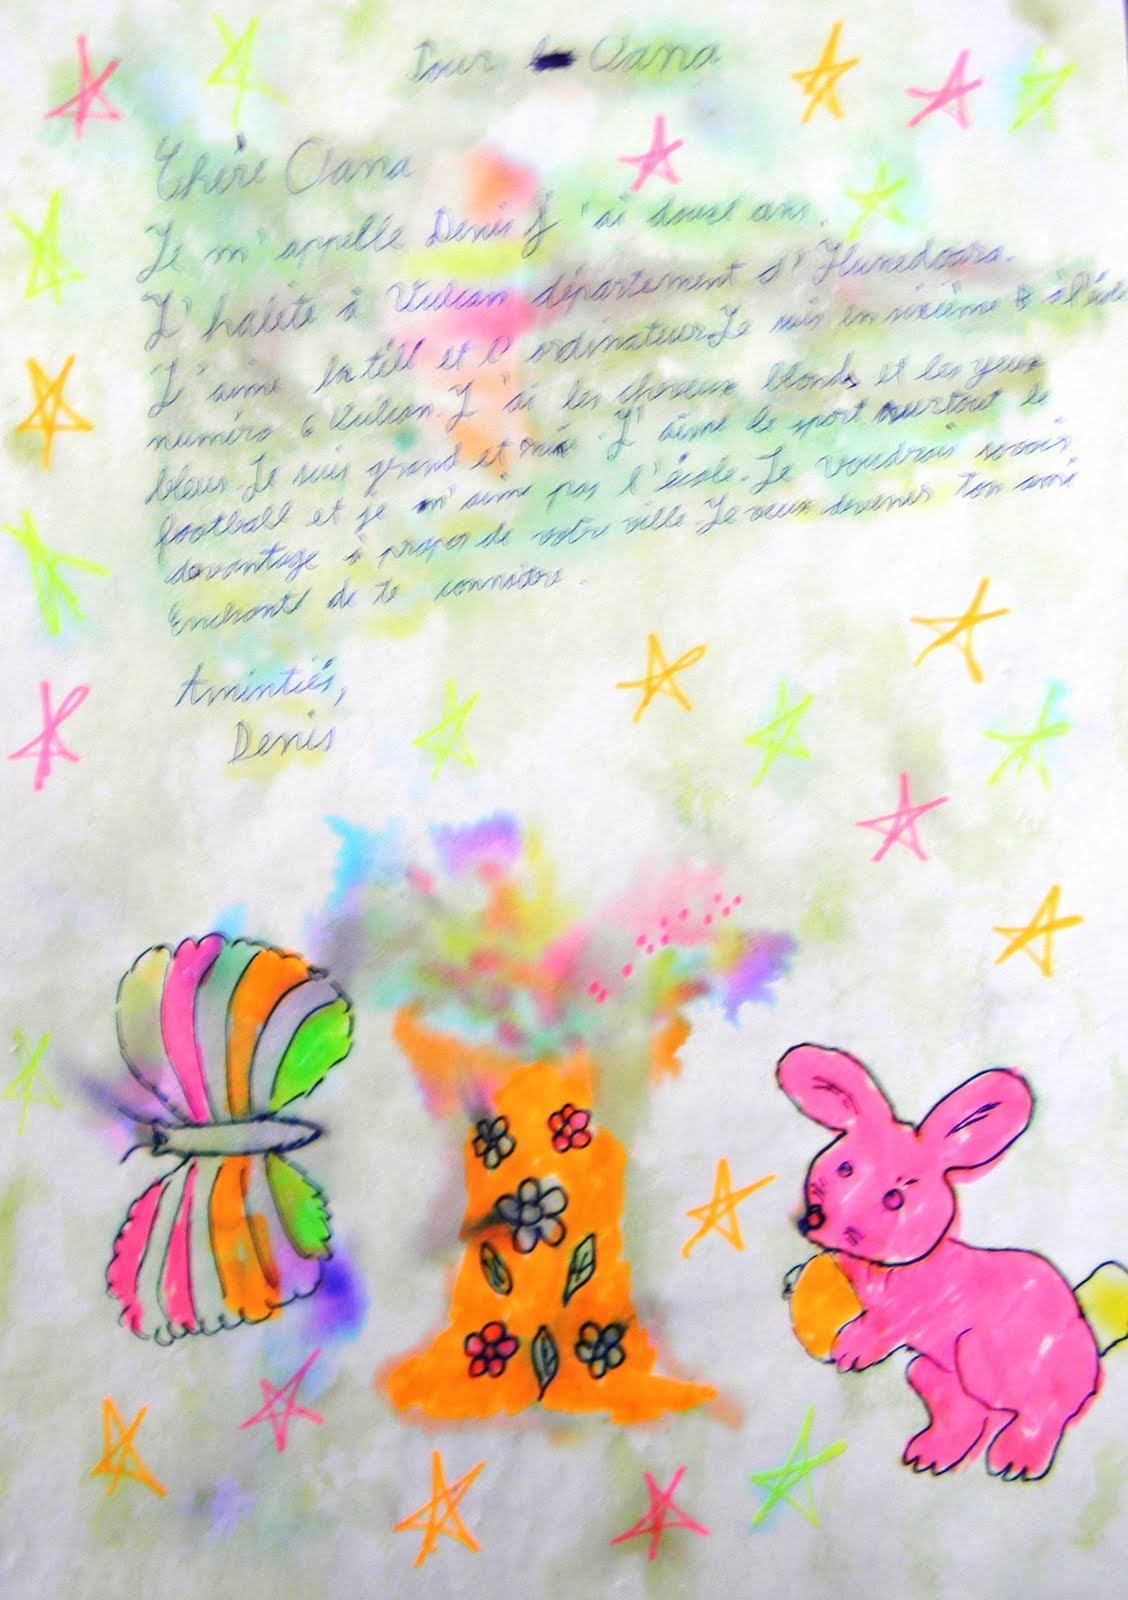 Pour Oana
Chère Oana
Je m'appelle Denis J'ai douze ans.
J'habite à Vulcan département d'Hunedoara.
J'aime la télé et l'ordinateur. Je suis en sixième B à l'école
numéro 6 Vulcan. J'ai les cheveux blonds et les yeux
bleus. Je suis grand et. J'aime le sport surtout le
football et je n'aime pas l'école. Je voudrais savoir
davantage à propos de votre ville Je veux devenir ton ami
Enchanté de te connaitre.
Amintiés,
Denis